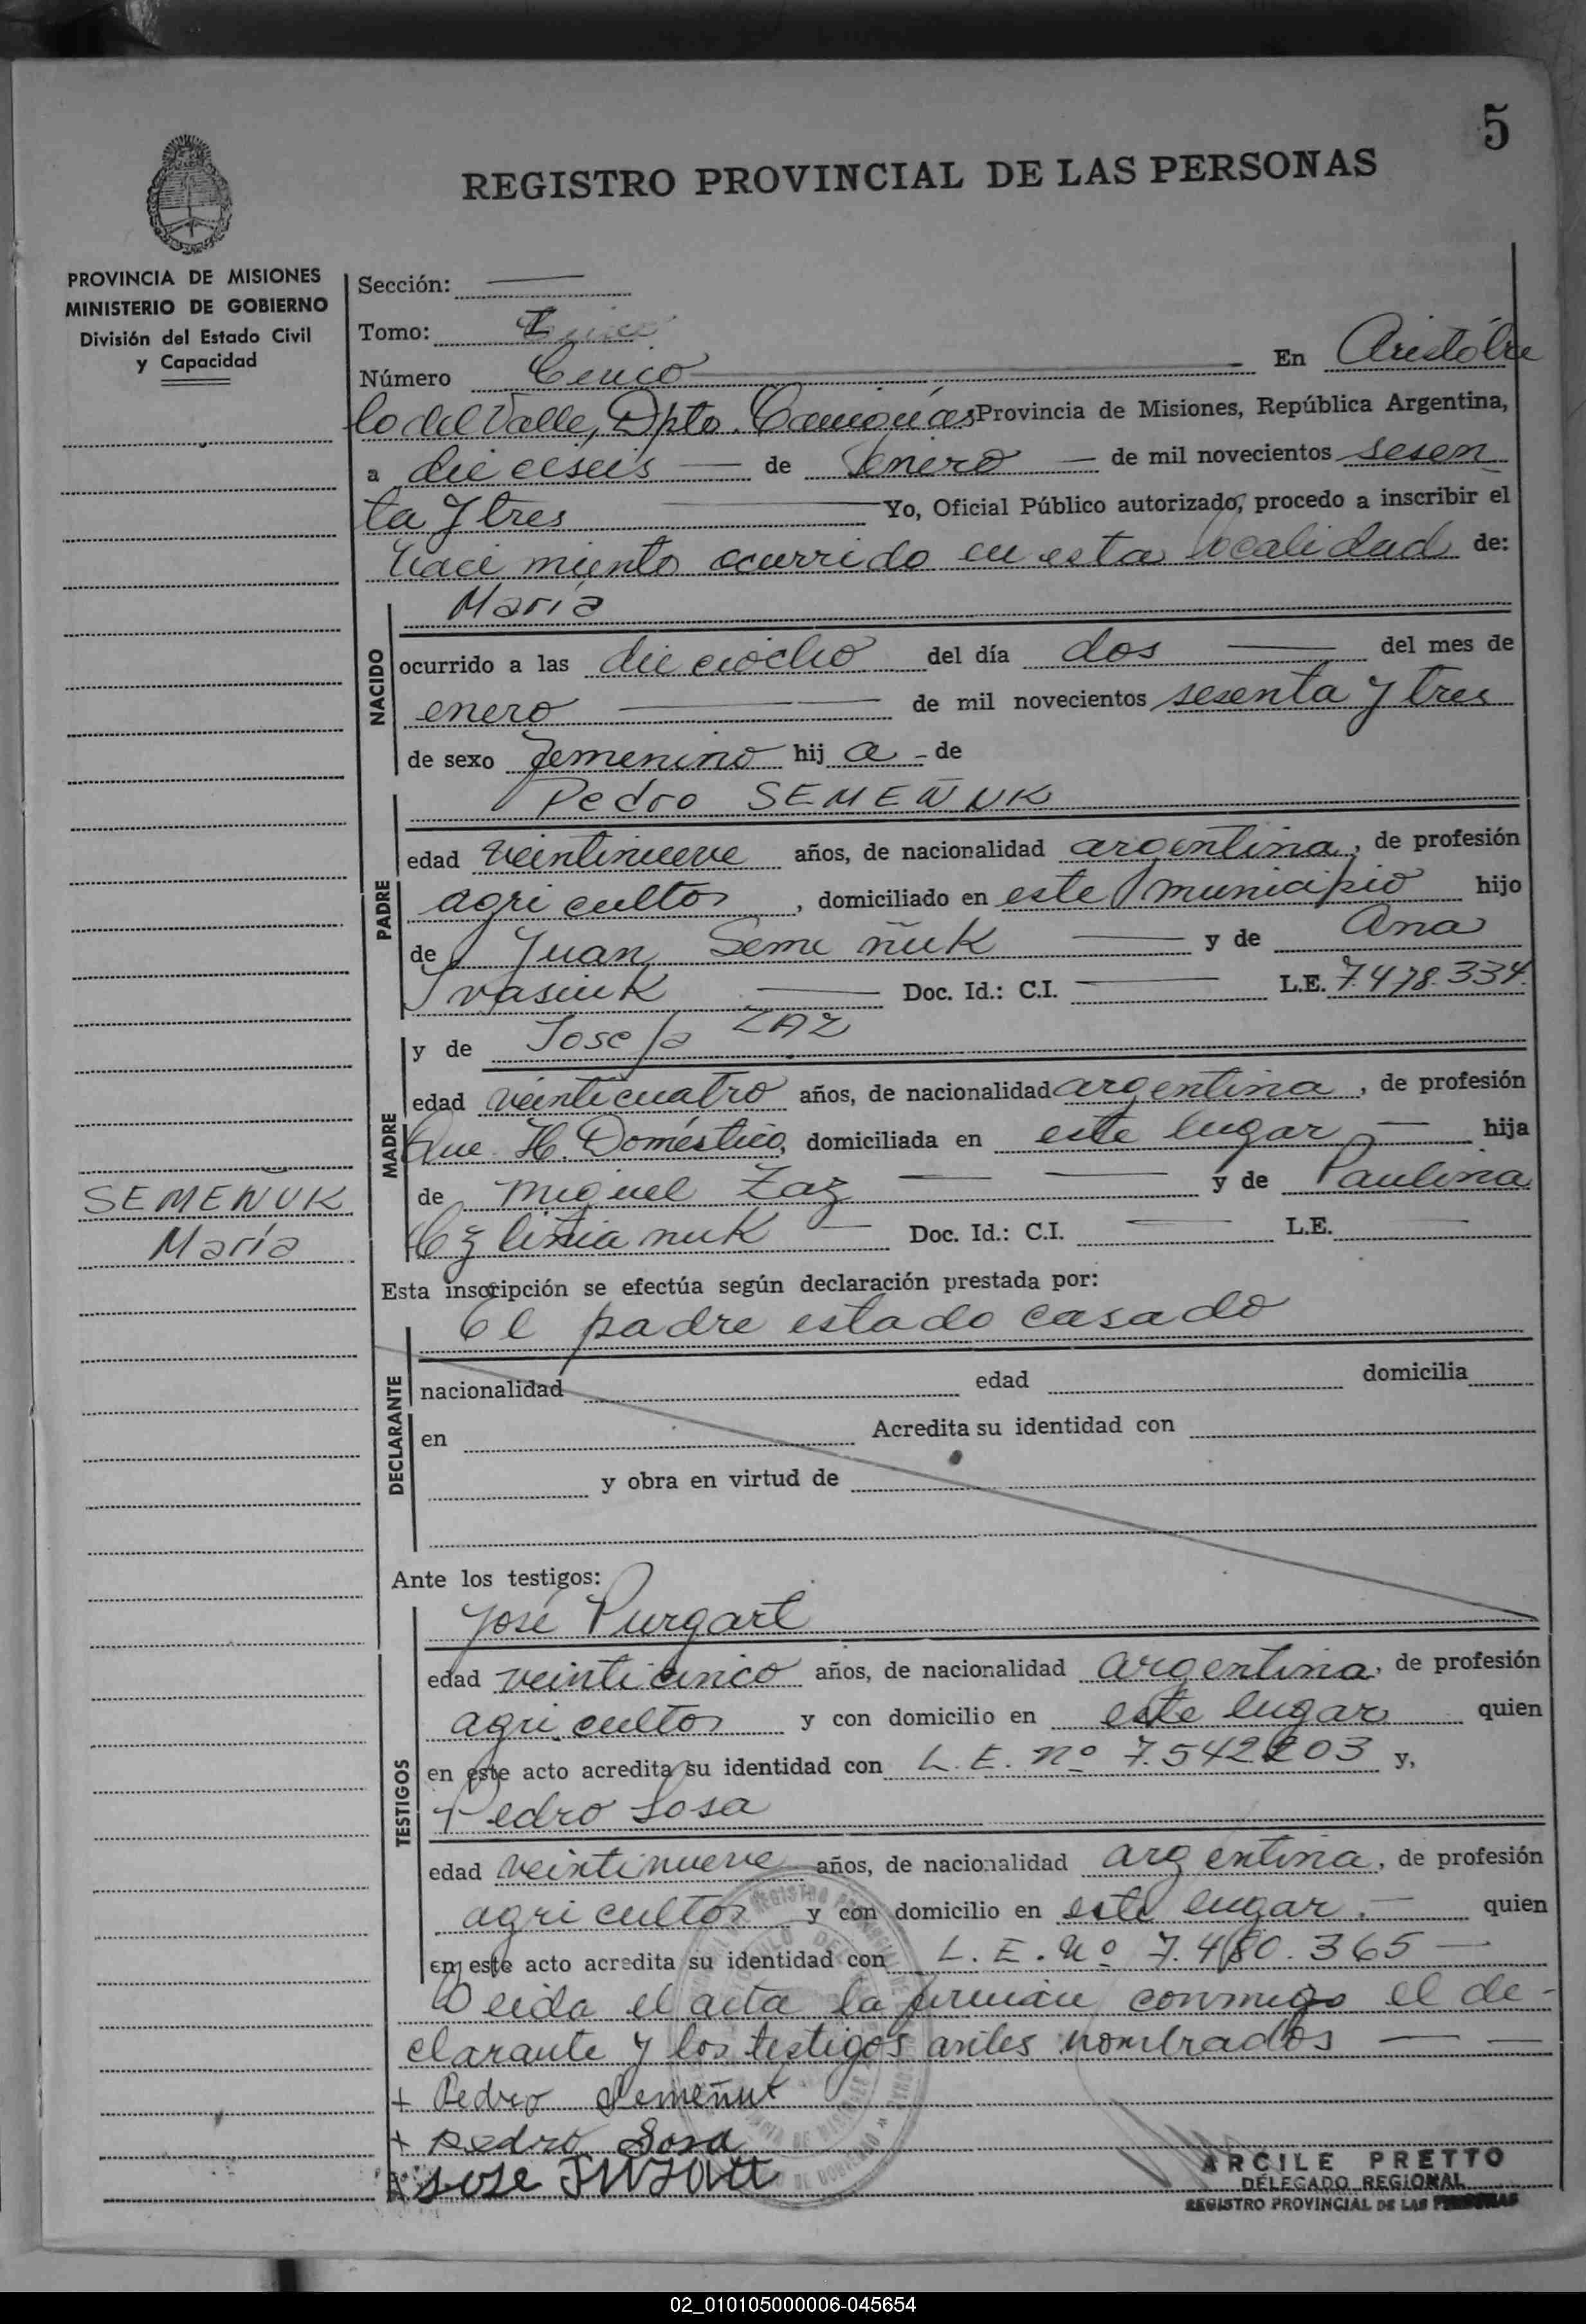 5
REGISTRO PROVINCIAL DE LAS PERSONAS
PROVINCIA DE MISIONES
MINISTERIO DE GOBIERNO
División del Estado Civil
y Capacidad
Sección:
Tomo: I
Número Cinco En Aristóbu
lo del Valle, Dpto. Cainguás Provincia de Misiones, República Argentina,
a dieciseis de Enero de mil novecientos sesen
ta y tres Yo, Oficial Público autorizado, procedo a inscribir el
naci miento ocurrido en esta localidad de:
NACIDO
María
ocurrido a las dieciocho del día dos del mes de
enero de mil novecientos sesenta y tres
de sexo femenino hij a - de
PADRE
Pedro SEMEÑUK
edad veintinueve años, de nacionalidad argentina, de profesión
agricultor, domiciliado en este municipio hijo
de Juan Semeñuk y de Ana
Ivasiuk Doc. Id.: C.I. L.E. 7.478.334.
MADRE
y de Josefa ZAZ
edad veinticuatro años, de nacionalidad argentina, de profesión
Que. H. Doméstico, domiciliada en este lugar hija
de Miguel Zaz y de Paulina
Doc. Id.: C.I. L.E.
SEMEÑUK
María
Esta inscripción se efectúa según declaración prestada por:
DECLARANTE
El padre estado casado
nacionalidad edad domicilia
en Acredita su identidad con
y obra en virtud de
Ante los testigos:
TESTIGOS
José Purgart
edad veinticinco años, de nacionalidad argentina, de profesión
agricultor y con domicilio en este lugar quien
en este acto acredita su identidad con L.E. nº 7.542203 y,
Pedro Sosa
edad veintinueve años, de nacionalidad argentina, de profesión
agricultor y con domicilio en este lugar.- quien
en este acto acredita su identidad con L.E. Nº 7.480.365
Leida el acta la firman conmigo el de-
clarante y los testigos antes nombrados
+ Pedro Semeñuk
+ Pedro Sosa
Jose
ARCILE PRETTO
DELEGADO REGIONAL
REGISTRO PROVINCIAL DE LAS PERSONAS
02_010105000006-045654